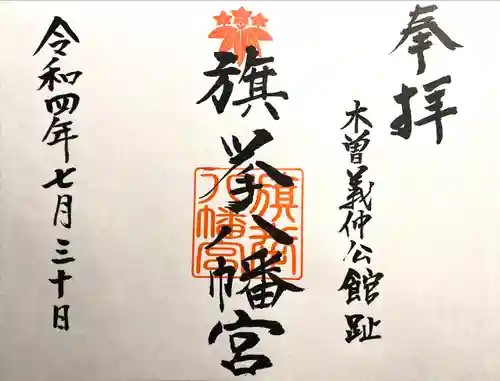 奉拝
木曽義仲公館趾
旗挙八幡宮
旗挙八幡宮
令和四年七月三十日